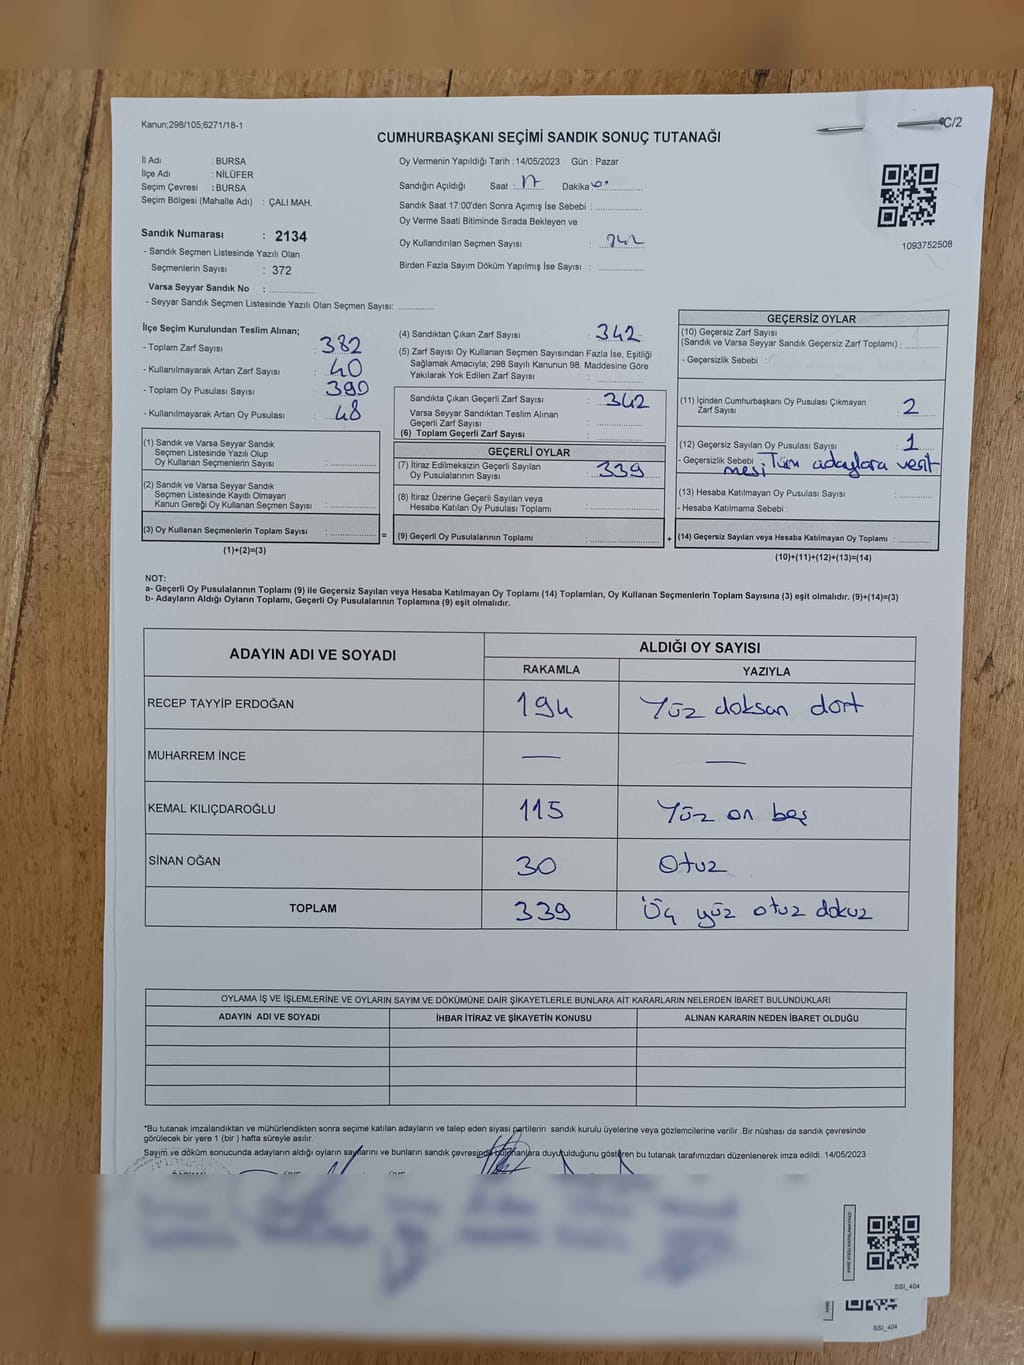 Kanun;298/105;6271/18-1
C/2
CUMHURBAŞKANI SEÇİMİ SANDIK SONUÇ TUTANAĞI
İl Adı : BURSA
İlçe Adı : NİLÜFER
Seçim Çevresi : BURSA
Seçim Bölgesi (Mahalle Adı) : ÇALI MAH.
Sandık Numarası : 2134
- Sandık Seçmen Listesinde Yazılı Olan
Seçmenlerin Sayısı : 372
Varsa Seyyar Sandık No : ............
- Seyyar Sandık Seçmen Listesinde Yazılı Olan Seçmen Sayısı: ............
Oy Vermenin Yapıldığı Tarih : 14/05/2023 Gün : Pazar
Sandığın Açıldığı Saat : 17 Dakika
Sandık Saat 17:00'den Sonra Açımış İse Sebebi : ............
Oy Verme Saati Bitiminde Sırada Bekleyen ve
Oy Kullandırılan Seçmen Sayısı : 342
Birden Fazla Sayım Döküm Yapılmış İse Sayısı : ............
1093752508
İlçe Seçim Kurulundan Teslim Alınan;
- Toplam Zarf Sayısı : 382
- Kullanılmayarak Artan Zarf Sayısı : 40
- Toplam Oy Pusulası Sayısı : 390
- Kullanılmayarak Artan Oy Pusulası : 48
(1) Sandık ve Varsa Seyyar Sandık
Seçmen Listesinde Yazılı Olup
Oy Kullanan Seçmenlerin Sayısı : ............
(2) Sandık ve Varsa Seyyar Sandık
Seçmen Listesinde Kayıtlı Olmayan
Kanun Gereği Oy Kullanan Seçmen Sayısı : ............
(3) Oy Kullanan Seçmenlerin Toplam Sayısı : ............ =
(1)+(2)=(3)
(4) Sandıktan Çıkan Zarf Sayısı : 342
(5) Zarf Sayısı Oy Kullanan Seçmen Sayısından Fazla İse, Eşitliği
Sağlamak Amacıyla; 298 Sayılı Kanunun 98. Maddesine Göre
Yakılarak Yok Edilen Zarf Sayısı : ............
Sandıkta Çıkan Geçerli Zarf Sayısı : 342
Varsa Seyyar Sandıktan Teslim Alınan
Geçerli Zarf Sayısı : ............
(6) Toplam Geçerli Zarf Sayısı : ............
GEÇERLİ OYLAR
(7) İtiraz Edilmeksizin Geçerli Sayılan
Oy Pusulalarının Sayısı : 339
(8) İtiraz Üzerine Geçerli Sayılan veya
Hesaba Katılan Oy Pusulası Toplamı : ............
(9) Geçerli Oy Pusulalarının Toplamı : ............ +
GEÇERSİZ OYLAR
(10) Geçersiz Zarf Sayısı
(Sandık ve Varsa Seyyar Sandık Geçersiz Zarf Toplamı) : ............
- Geçersizlik Sebebi :
(11) İçinden Cumhurbaşkanı Oy Pusulası Çıkmayan
Zarf Sayısı : 2
(12) Geçersiz Sayılan Oy Pusulası Sayısı : 1
- Geçersizlik Sebebi : Tüm adaylara veril
mesi
(13) Hesaba Katılmayan Oy Pusulası Sayısı : ............
- Hesaba Katılmama Sebebi :
(14) Geçersiz Sayılan veya Hesaba Katılmayan Oy Toplamı : ............
(10)+(11)+(12)+(13)=(14)
NOT:
a- Geçerli Oy Pusulalarının Toplamı (9) ile Geçersiz Sayılan veya Hesaba Katılmayan Oy Toplamı (14) Toplamları, Oy Kullanan Seçmenlerin Toplam Sayısına (3) eşit olmalıdır. (9)+(14)=(3)
b- Adayların Aldığı Oyların Toplamı, Geçerli Oy Pusulalarının Toplamına (9) eşit olmalıdır.
ADAYIN ADI VE SOYADI
ALDIĞI OY SAYISI
RAKAMLA YAZIYLA
RECEP TAYYİP ERDOĞAN 194 Yüz doksan dört
MUHARREM İNCE — —
KEMAL KILIÇDAROĞLU 115 Yüz on beş
SİNAN OĞAN 30 Otuz
TOPLAM 339 Üç yüz otuz dokuz
OYLAMA İŞ VE İŞLEMLERİNE VE OYLARIN SAYIM VE DÖKÜMÜNE DAİR ŞİKAYETLERLE BUNLARA AİT KARARLARIN NELERDEN İBARET BULUNDUKLARI
ADAYIN ADI VE SOYADI İHBAR İTİRAZ VE ŞİKAYETİN KONUSU ALINAN KARARIN NEDEN İBARET OLDUĞU
*Bu tutanak imzalandıktan ve mühürlendikten sonra seçime katılan adayların ve talep eden siyasi partilerin sandık kurulu üyelerine veya gözlemcilerine verilir. Bir nüshası da sandık çevresinde
görülecek bir yere 1 (bir ) hafta süreyle asılır.
Sayım ve döküm sonucunda adayların aldığı oyların sayılarını ve bunların sandık çevresinde bulunanlara duyurulduğunu gösteren bu tutanak tarafımızdan düzenlenerek imza edildi. 14/05/2023
SSI_404
SSI_404